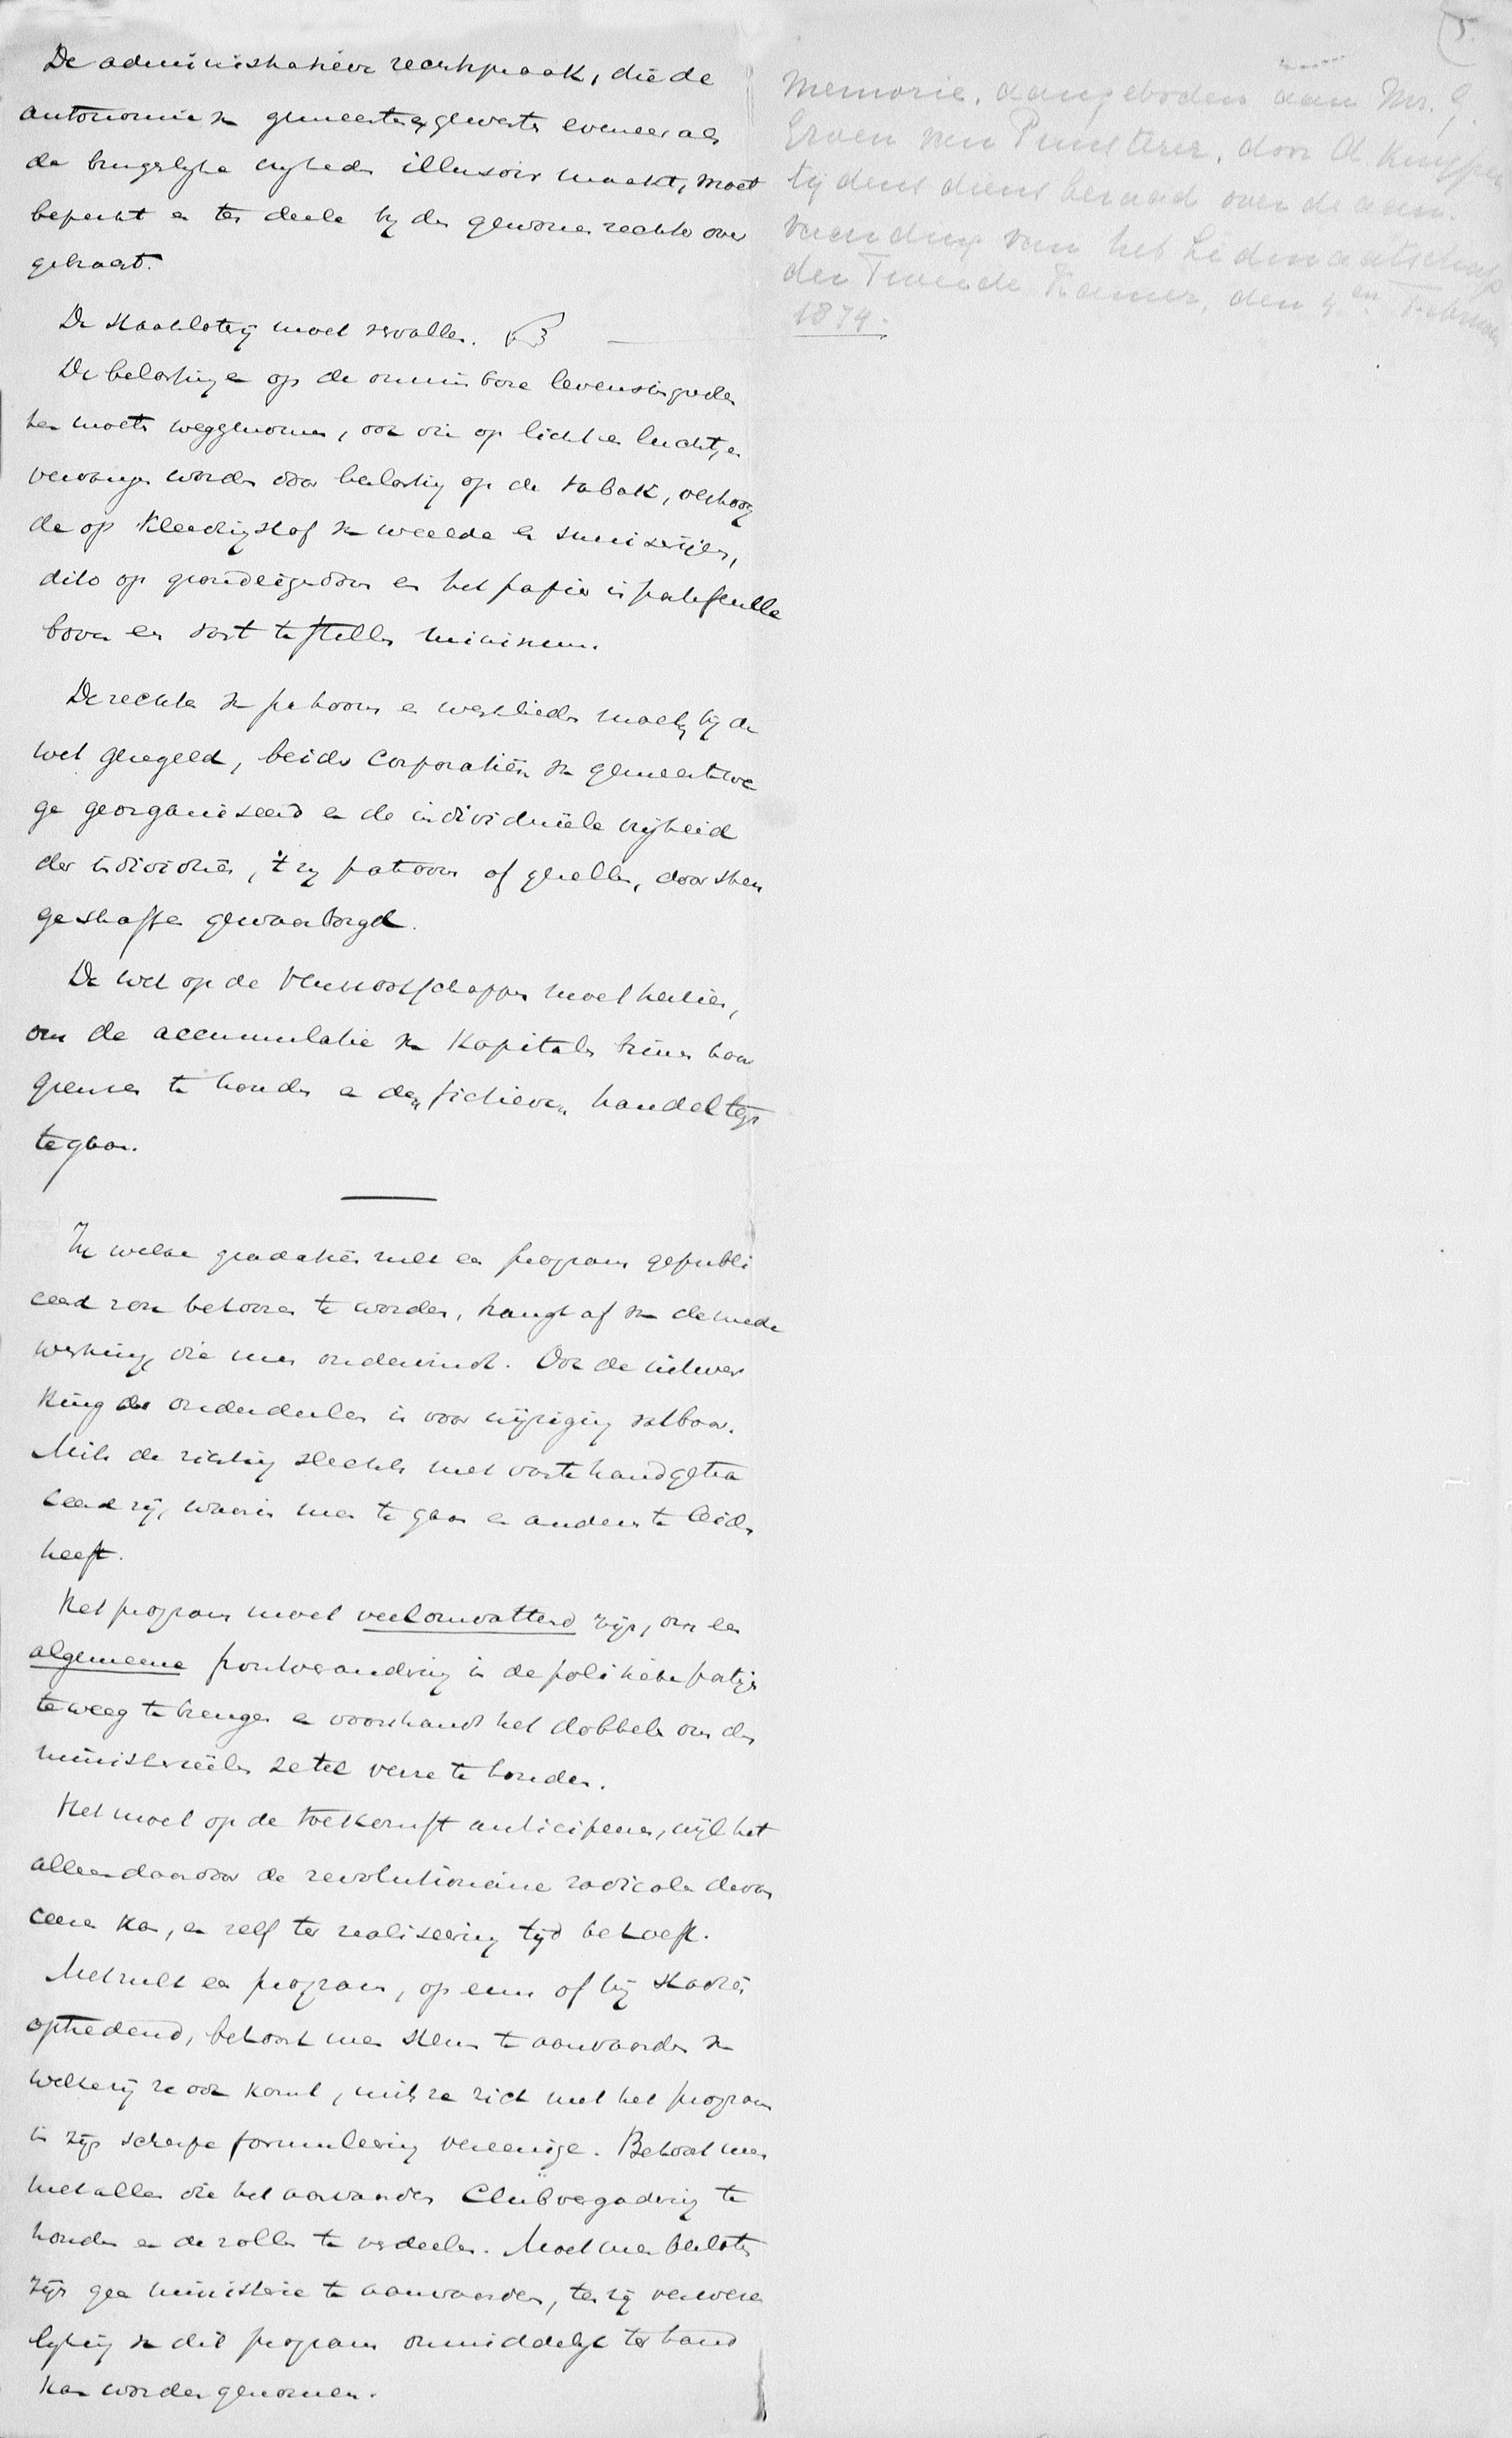 De administratieve rechtspraak, die de
autonomie v. gemeenten & gewesten evenzeer als
de burgerlyke vryheden illusoir maakt, moet
beperkt en ten deele by den gewonen rechter over
gebracht.
De Staatsloterij moet vervallen.
De belastingen op de onmisbare levensbenoodigdhe
den moeten weggenomen, ook die op licht en lucht, en
vervangen worden door belasting op de tabak, verhoog
de op kleedingstof van weelde en
dito op grondeigendom en het papier in portefeuille
boven een vast te stellen minimum.
De rechten v. patroons en werklieden moeten by de
wet geregeld, beider Corporatiën v. gemeentewe
ge georganiseerd en de individuëele vrijheid
der individuën, 't zy patroons of gezellen, door stren
ge straffen gewaarborgd.
De wet op de Vennootschappen moet herzien,
om de accumulatie v. Kapitalen binnen haar
grenzen te houden en den "fictieven" handel tegen
te gaan.
In welke gradatiën zulk een program gepubli
ceerd zou behooren te worden, hangt af v. de mede
werking, die men ondervindt. Ook de uitwer
king der onderdeelen is voor wijziging vatbaar.
Mits de richting slechts met vaste hand getra
ceerd zij, waarin men te gaan en anderen te leiden
heeft.
Het program moet veelomvattend zijn, om een
algemeene frontverandering in de politieke partijen
teweeg te brengen en voorshands het dobbelen om den
ministerieëlen zetel verre te houden.
Het moet op de toekomst anticiperen, wijl het
alleen daardoor de revolutionaire radicalen devan
ceeren kan, en zelf ter realiseering tijd behoeft.
Met zulk een program, op eens of bij stadiën
optredend, behoort men steun te aanvaarden van
welke zij ze ook komt, mits ze zich met het program
in zijn scherpe formuleering vereenige. Behoort men
met allen die het aanvaarden Clubvergadering te
houden en de rollen te verdeelen. Moet men besloten
zijn geen ministerie te aanvaarden, tenzij verweze
lyking van dit program onmiddelyk ter hand
kan worden genomen.
5.
Memorie, aangeboden aan Mr. G.
Groen van Prinsterer, door A. Kuyper
tijdens diens beraad over de aan-
vaarding van het Lidmaatschap
der Tweede Kamer, den 4en Februari
1874.